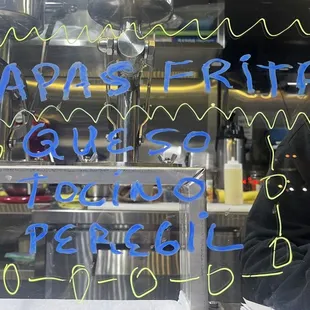 APAS FRITA
QUESO
TOCINO
PEREGIL